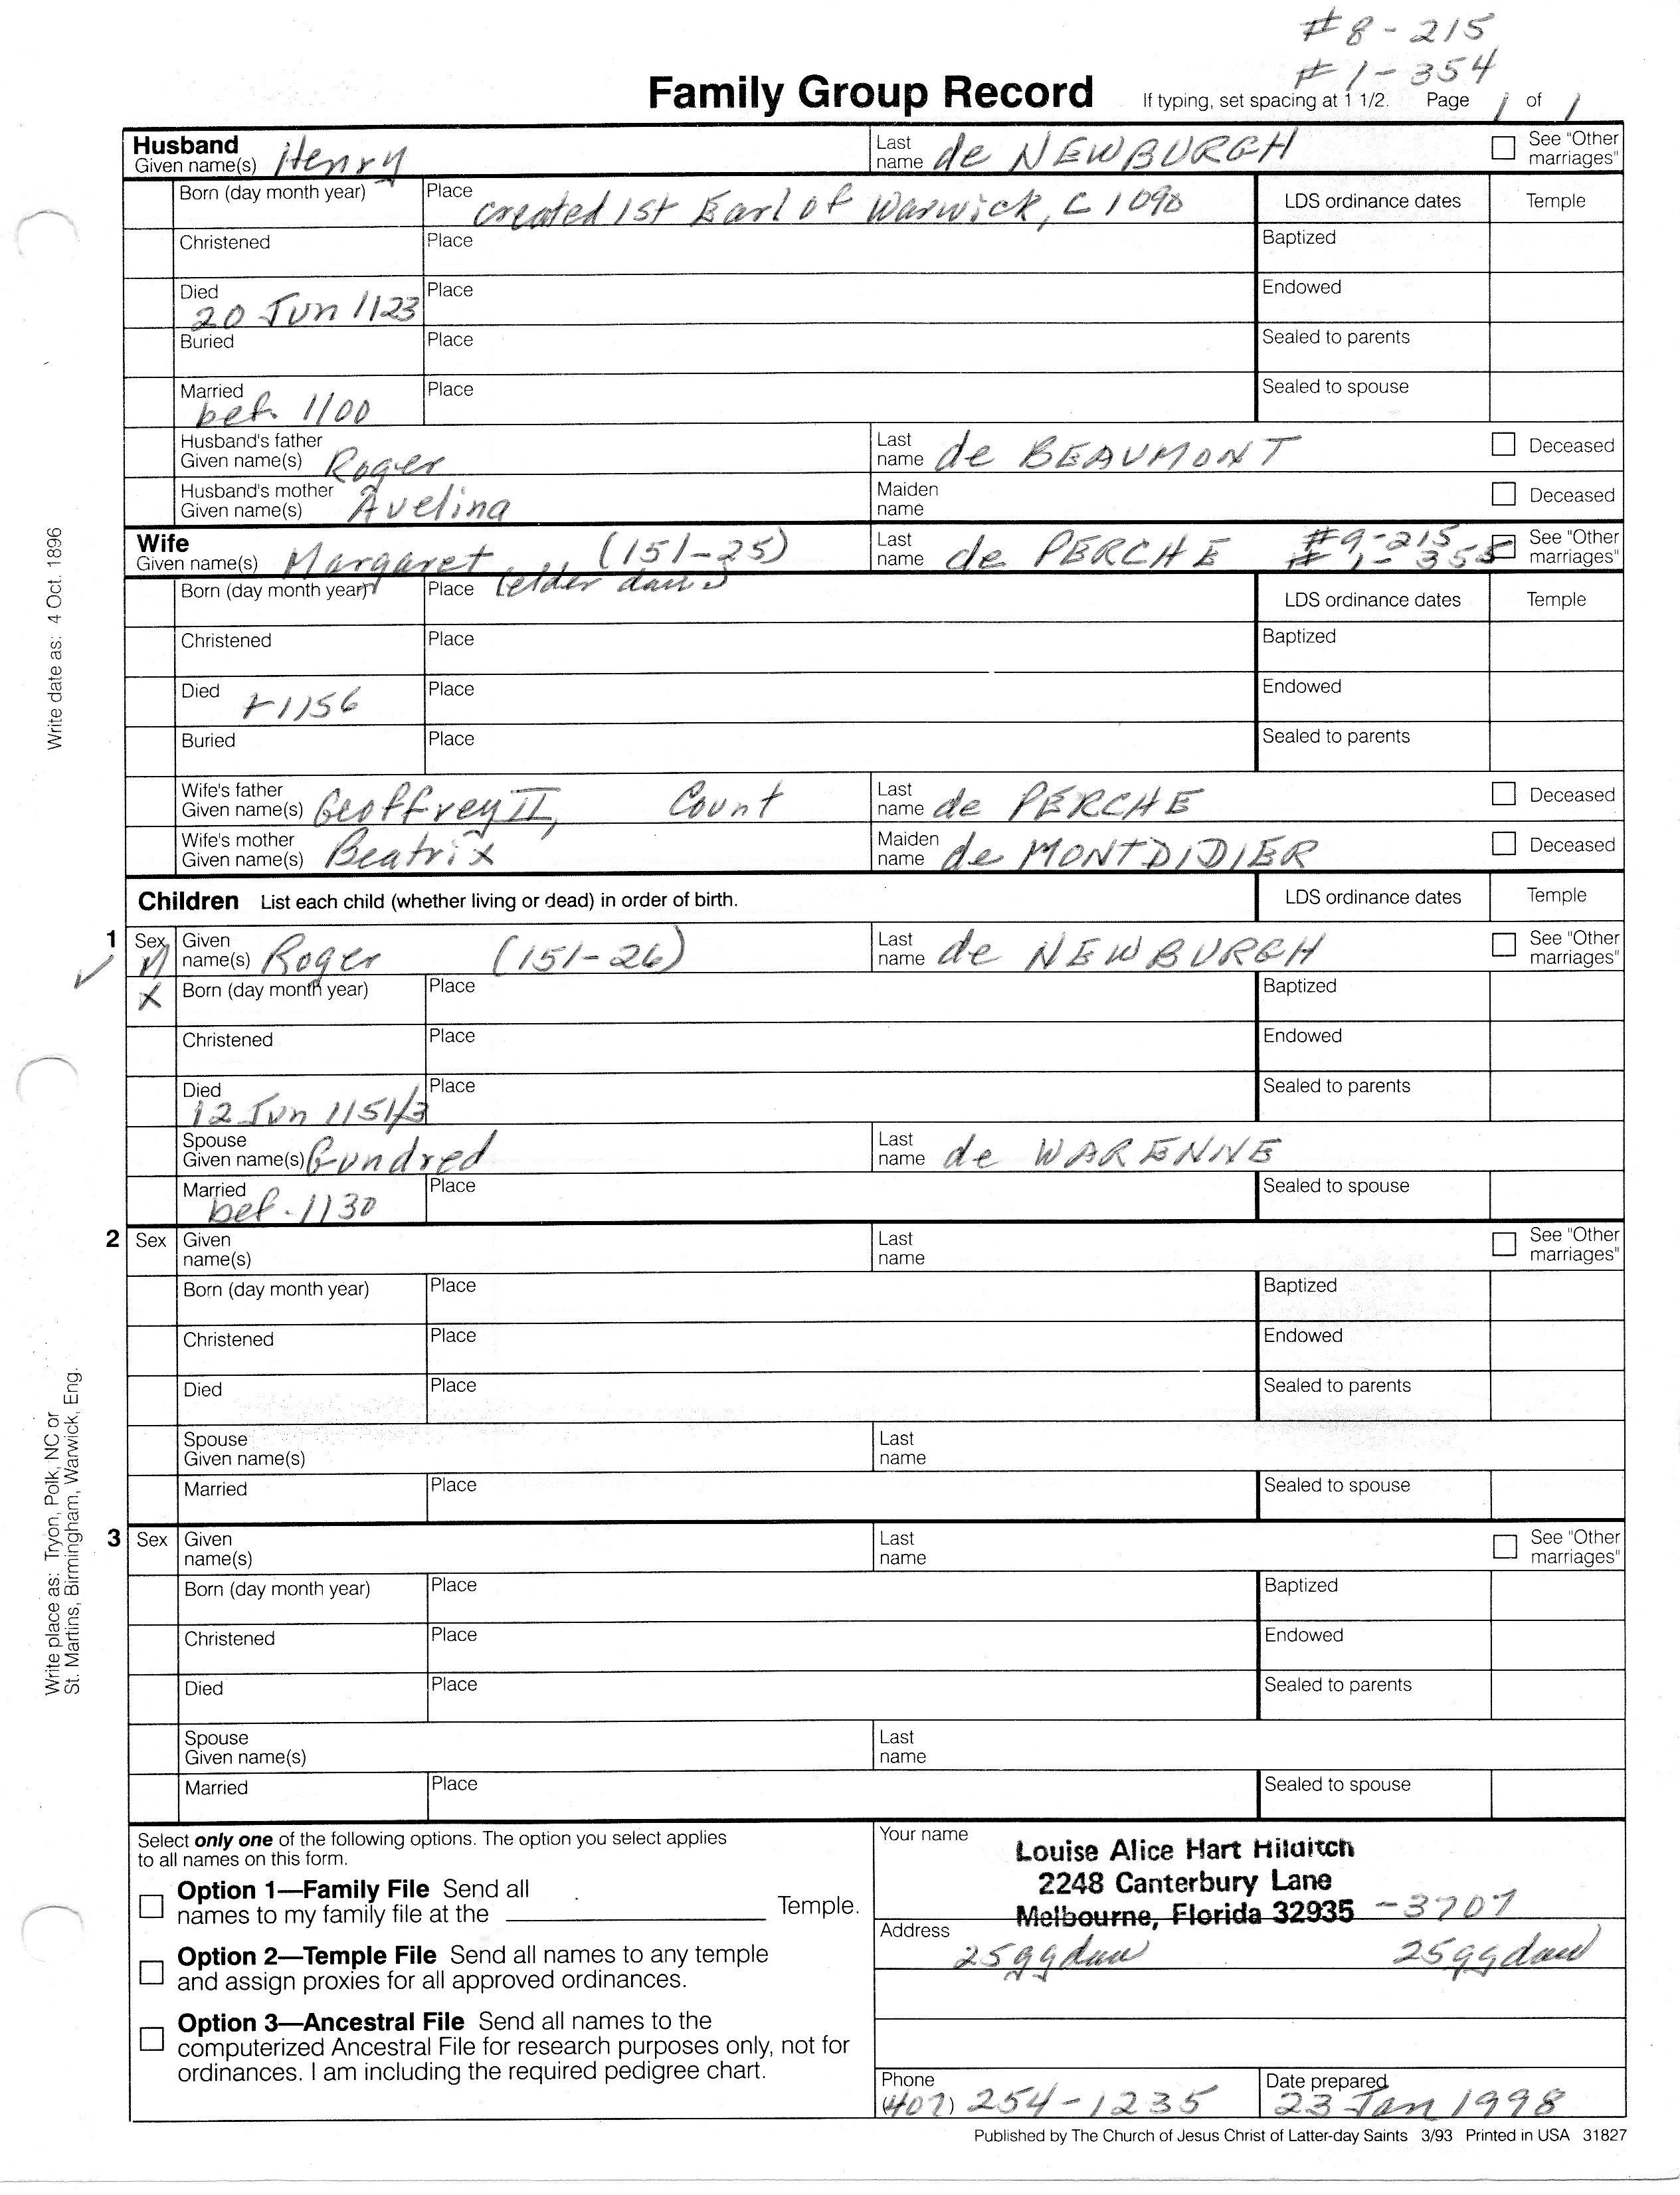 #8-215
#1-354
Family Group Record If typing, set spacing at 1 1/2. Page 1 of 1
Husband
Given name(s) Henry Last name de NEWBURGH See "Other marriages"
Born (day month year) Place created 1st Earl of Warwick, C 1090 LDS ordinance dates Temple
Christened Place Baptized
Died 20 Jun 1123 Place Endowed
Buried Place Sealed to parents
Married bef. 1100 Place Sealed to spouse
Husband's father
Given name(s) Roger Last name de BEAUMONT Deceased
Husband's mother
Given name(s) Avelina Maiden name Deceased
Wife
Given name(s) Margaret (151-25) Last name de PERCHE #9-215 #1-355 See "Other marriages"
Born (day month year) Place (elder dau) LDS ordinance dates Temple
Christened Place Baptized
Died +1156 Place Endowed
Buried Place Sealed to parents
Wife's father
Given name(s) Geoffrey II, Count Last name de PERCHE Deceased
Wife's mother
Given name(s) Beatrix Maiden name de MONTDIDIER Deceased
Children List each child (whether living or dead) in order of birth. LDS ordinance dates Temple
1 Sex M Given name(s) Roger (151-26) Last name de NEWBURGH See "Other marriages"
X Born (day month year) Place Baptized
Christened Place Endowed
Died 12 Jun 1151/3 Place Sealed to parents
Spouse
Given name(s) Gundred Last name de WARENNE
Married bef. 1130 Place Sealed to spouse
2 Sex Given name(s) Last name See "Other marriages"
Born (day month year) Place Baptized
Christened Place Endowed
Died Place Sealed to parents
Spouse
Given name(s) Last name
Married Place Sealed to spouse
3 Sex Given name(s) Last name See "Other marriages"
Born (day month year) Place Baptized
Christened Place Endowed
Died Place Sealed to parents
Spouse
Given name(s) Last name
Married Place Sealed to spouse
Write date as: 4 Oct. 1896
Write place as: Tryon, Polk, NC or
St. Martins, Birmingham, Warwick, Eng.
Select only one of the following options. The option you select applies
to all names on this form.
Option 1—Family File Send all
names to my family file at the Temple.
Option 2—Temple File Send all names to any temple
and assign proxies for all approved ordinances.
Option 3—Ancestral File Send all names to the
computerized Ancestral File for research purposes only, not for
ordinances. I am including the required pedigree chart.
Your name Louise Alice Hart Hilditch
2248 Canterbury Lane
Melbourne, Florida 32935 -3707
Address 25ggdau 25ggdau
Phone (407) 254-1235 Date prepared 23 Jan 1998
Published by The Church of Jesus Christ of Latter-day Saints 3/93 Printed in USA 31827